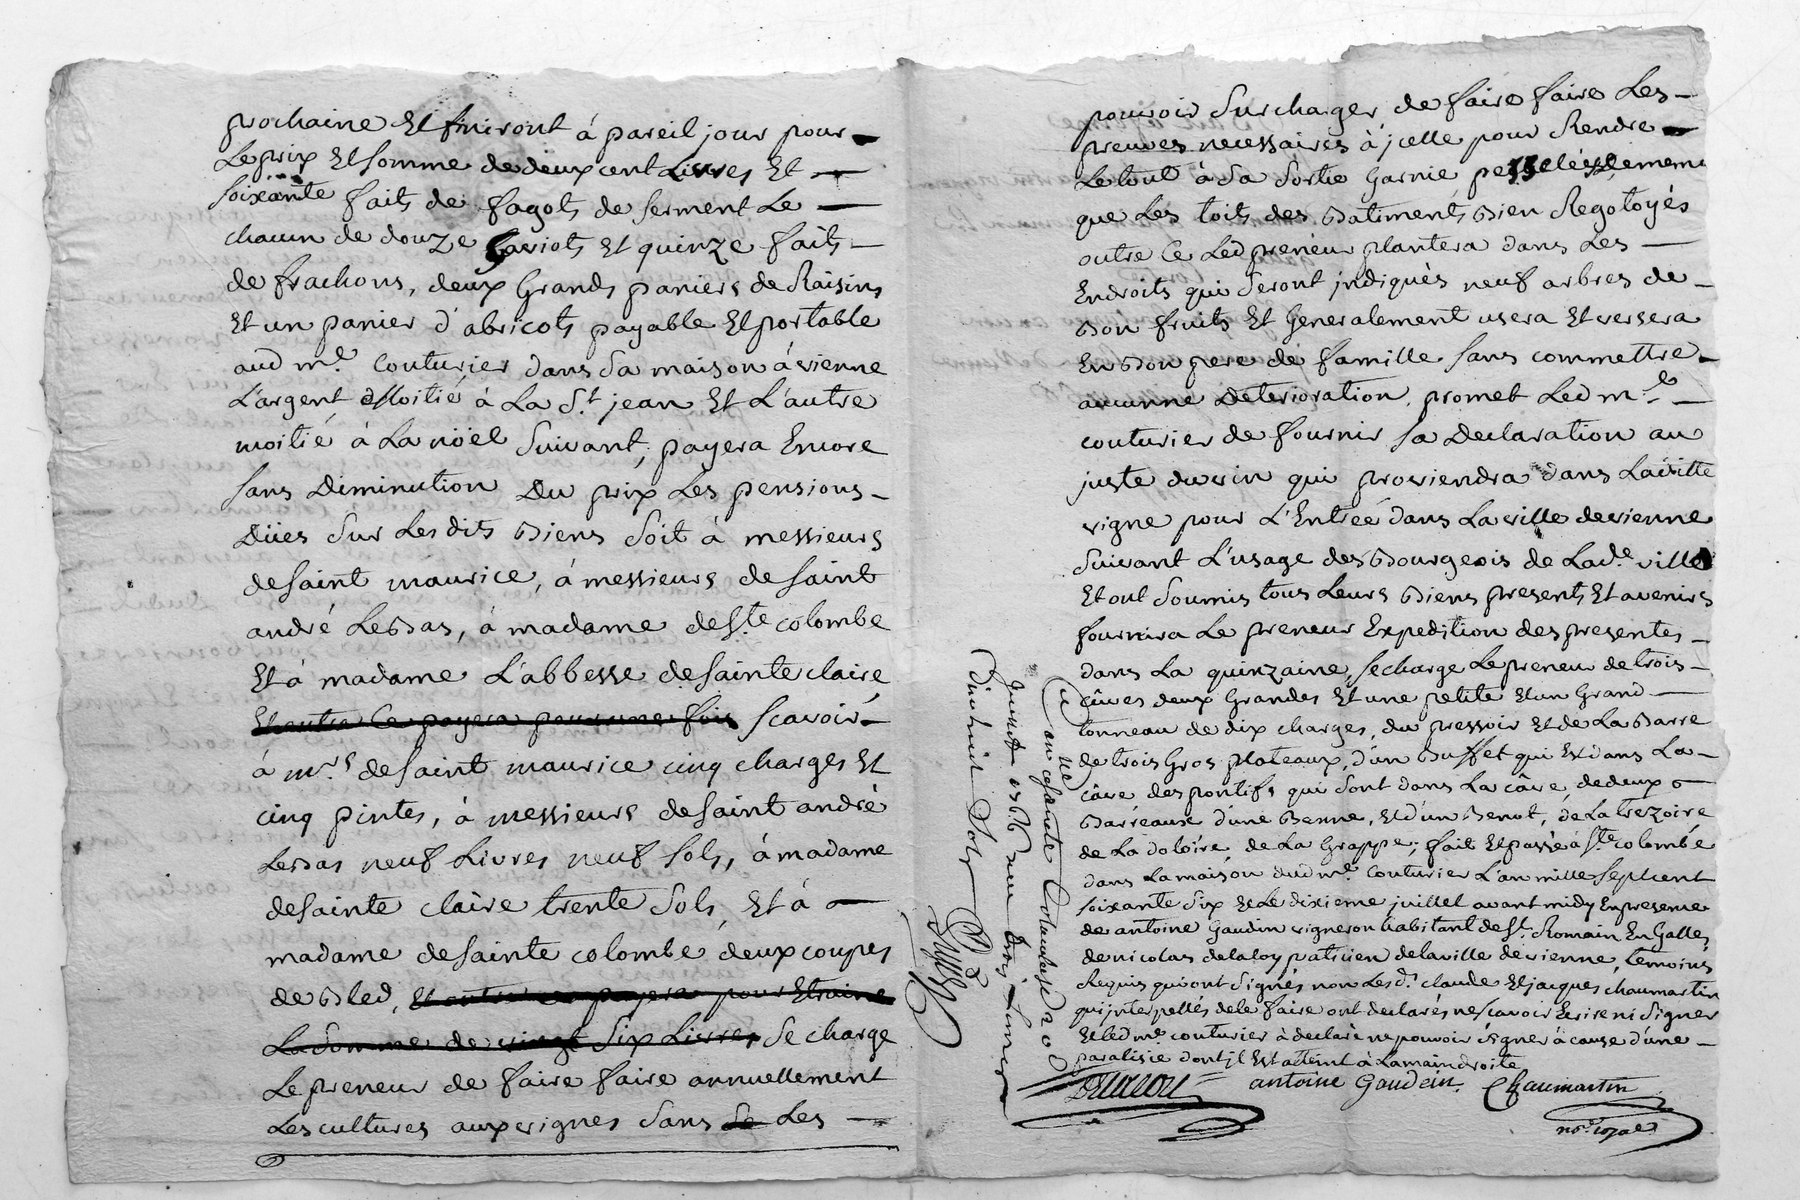 prochaine Et finiront à pareil jour pour
Le prix Et somme de deux cent Livres Et
soixante faits de fagots de serment Le
chacun de douze Gaviots Et quinze faits
de frachons, deux Grands paniers de Raisins
Et un panier d'abricots payable Et portable
aud me. Couturier dans sa maison à vienne
L'argent Moitié à La St. jean Et L'autre
moitié à La nöel Suivant, payera Encore
sans Diminution Du prix Les pensions
Dües Sur Les dits Biens Soit à messieurs
de saint maurice, à messieurs de saint
andré Le Bas, à madame de Ste colombe
Et à madame L'abbesse de sainte claire
Et outre Ce payera pour une fois scavoir
à mrs de saint maurice cinq charges Et
cinq pintes, à messieurs de saint andré
Le Bas neuf Livres neuf sols, à madame
de sainte claire trente Sols, Et à
madame de sainte colombe deux coupes
de Bled, Et outre ce payera pour Etraine
La Somme de vingt Six Livres Se charge
Le preneur de faire faire annuellement
Les cultures aux vignes Sans Se Les
pouvoir Surcharger de faire faire Les
preuves necessaires à jcelle pour Rendre
Le tout à Sa Sortie Garnie
que Les toits des Batiments Bien Regotoyés
outre Ce Led preneur plantera dans Les
Endroits qui Seront jndiqués neuf arbres de
Bon fruits Et Generalement usera Et versera
En Bon pere de famille sans commettre
aucunne Deterioration, promet Led me.
couturier de fournir sa Declaration au
juste du vin qui proviendra dans Ladite
vigne pour L'Entrée dans La ville de vienne
Suivant L'usage des Bourgeois de Lade. ville
Et ont Soumis tous Leurs Biens presents Et avenirs
fournira Le preneur Expedition des presentes
dans La quinzaine, se charge Le preneur de trois
cüves deux Grandes Et une petite Et un Grand
tonneau de dix charges, du pressoir Et de La Barre
de trois Gros plateaux, d'un Buffet qui Est dans La
câve des pontifs qui Sont dans La câve, de deux
Barreaux d'une Benne, Et d'un Benot, de La trezoire
de La doloire, de La Grappe; fait Et passé à Ste colombe
dans La maison dud me. Couturier L'an mille Sept cent
soixante Six Et Le dixieme juillet avant midy En presence
de antoine Gaudin vigneron habitant de St. Romain En Galles
de nicolas delaloy paticien de la ville de vienne, temoins
Requis qui ont Signés non Les d. claude Et jacques chaumartin
qui jnterpellés de le faire ont declarés ne scavoir Ecrire ni Signer
Et led me. couturier à declaré ne pouvoir signer à cause d'une
paralisie dont jl Est atteint à La main droite
antoine Gaudein. Chaumartin
nore. royal
juillet 1766 Reçu trois Livres
dix huit Sols